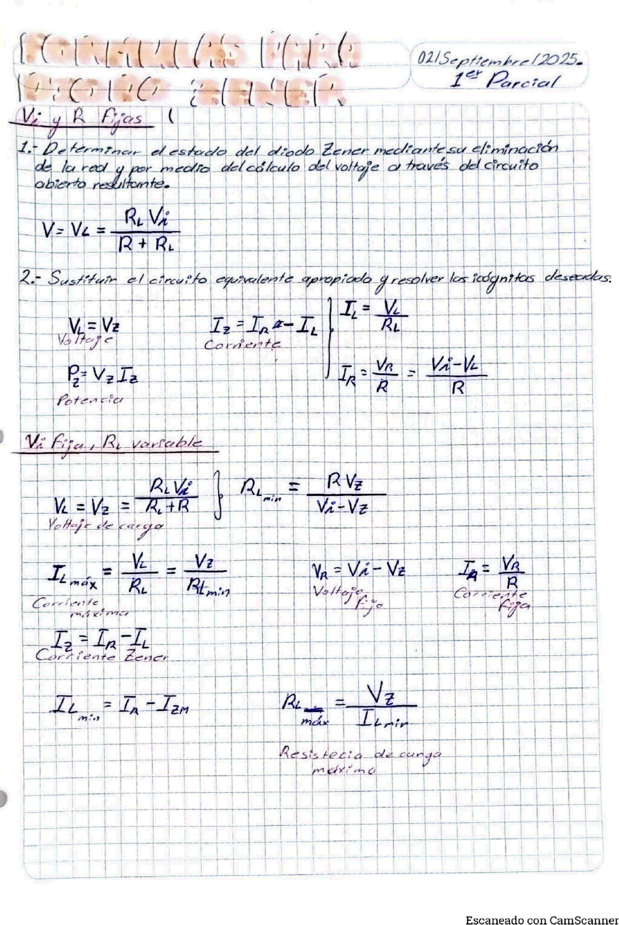 FORMULAS PARA
DIODO ZENER
02/Septiembre/2025.
1er Parcial
Vi y R fijas
1.- Determinar el estado del diodo Zener mediante su eliminación
de la red y por medio del cálculo del voltaje a través del circuito
abierto resultante.
V = VL = RL Vi / R + RL
2.- Sustituir el circuito equivalente apropiado y resolver las icógnitas deseadas.
VL = Vz
Voltaje
Iz = IR - IL
Corriente
IL = VL / RL
Pz = Vz Iz
Potencia
IR = VR / R = Vi - VL / R
Vi fija, RL variable
VL = Vz = RL Vi / RL + R
Voltaje de carga
RLmin = R Vz / Vi - Vz
IL máx = VL / RL = Vz / RLmin
Corriente
máxima
VR = Vi - Vz
Voltaje
fijo
IR = VR / R
Corriente
fija
Iz = IR - IL
Corriente Zener
IL min = IR - IZM
RL máx = Vz / IL min
Resistecia de carga
máxima
Escaneado con CamScanner